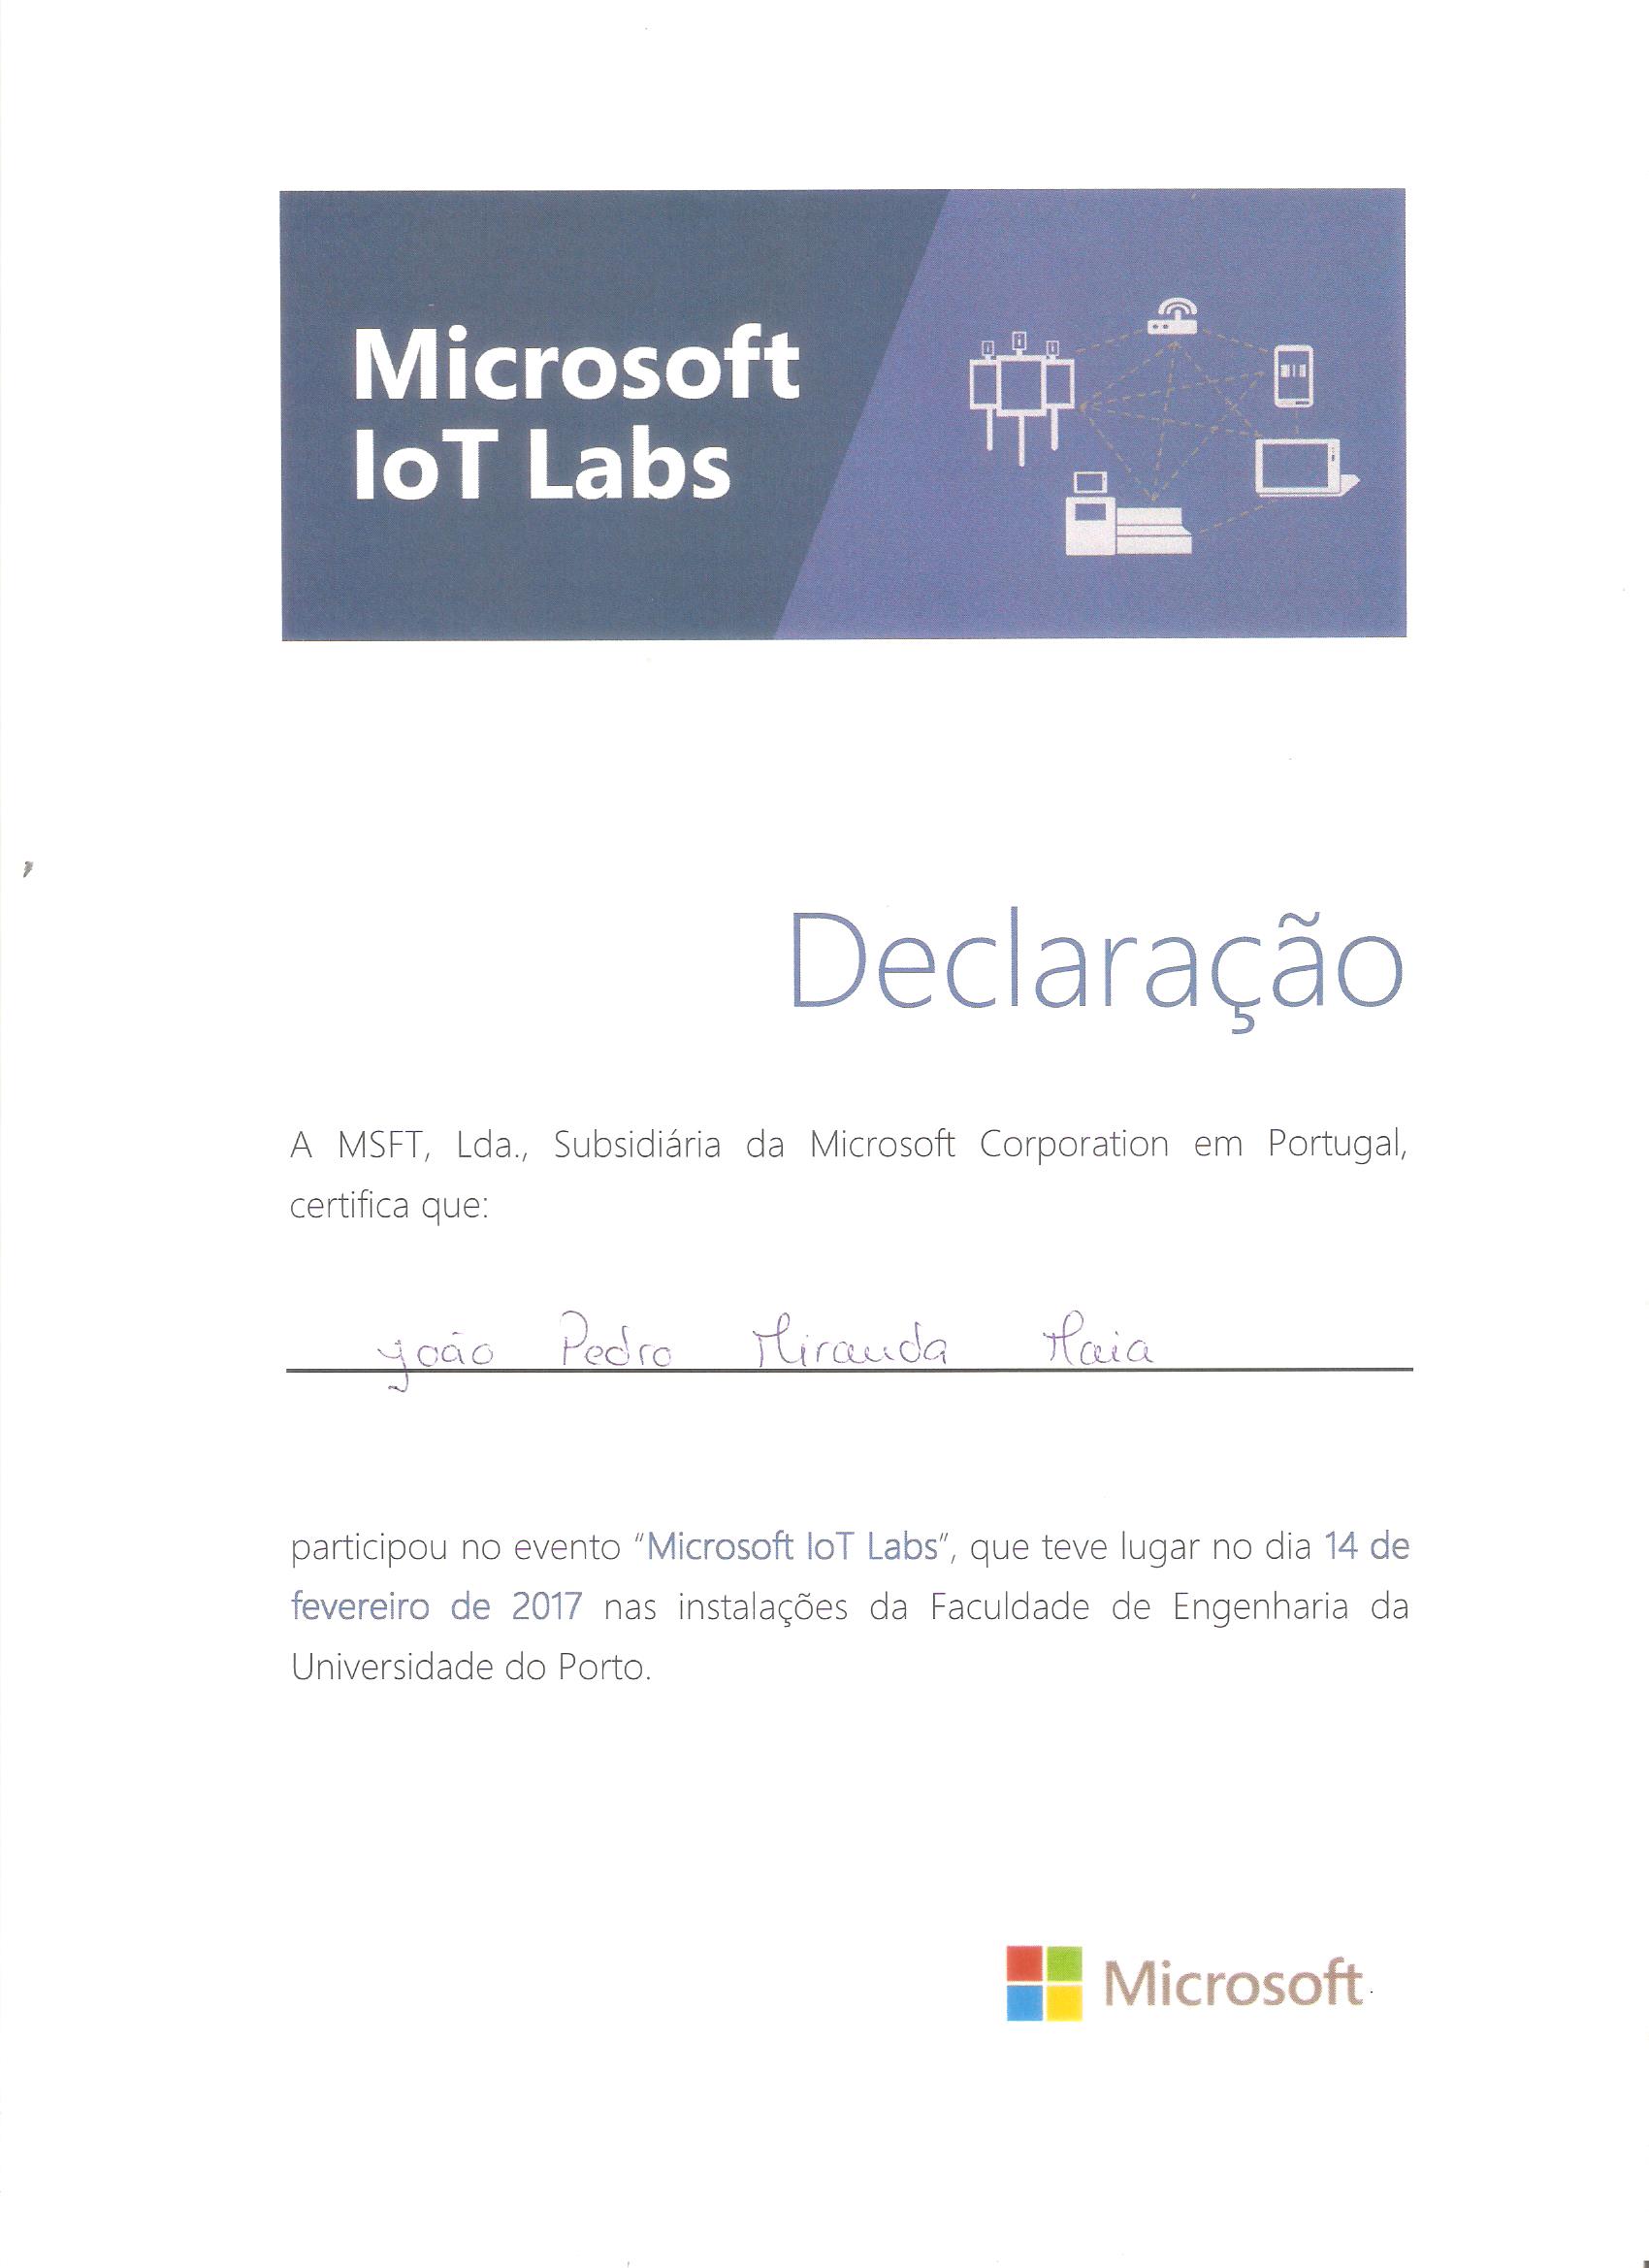 Microsoft
IoT Labs
Declaração
A MSFT, Lda., Subsidiária da Microsoft Corporation em Portugal,
certifica que:
João Pedro Miranda Maia
participou no evento “Microsoft IoT Labs”, que teve lugar no dia 14 de
fevereiro de 2017 nas instalações da Faculdade de Engenharia da
Universidade do Porto.
Microsoft